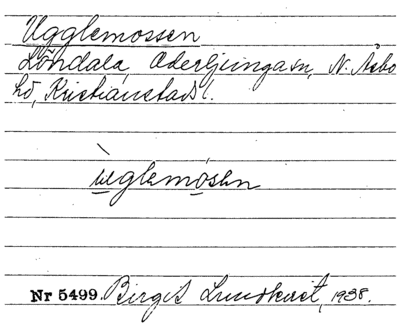 Ugglemossen
Löndala, Oderljunga sn, N. Åsbo
hd, Kristianstads l.
ùglemósen
Nr 5499. Birgit Lundkvist, 1938.